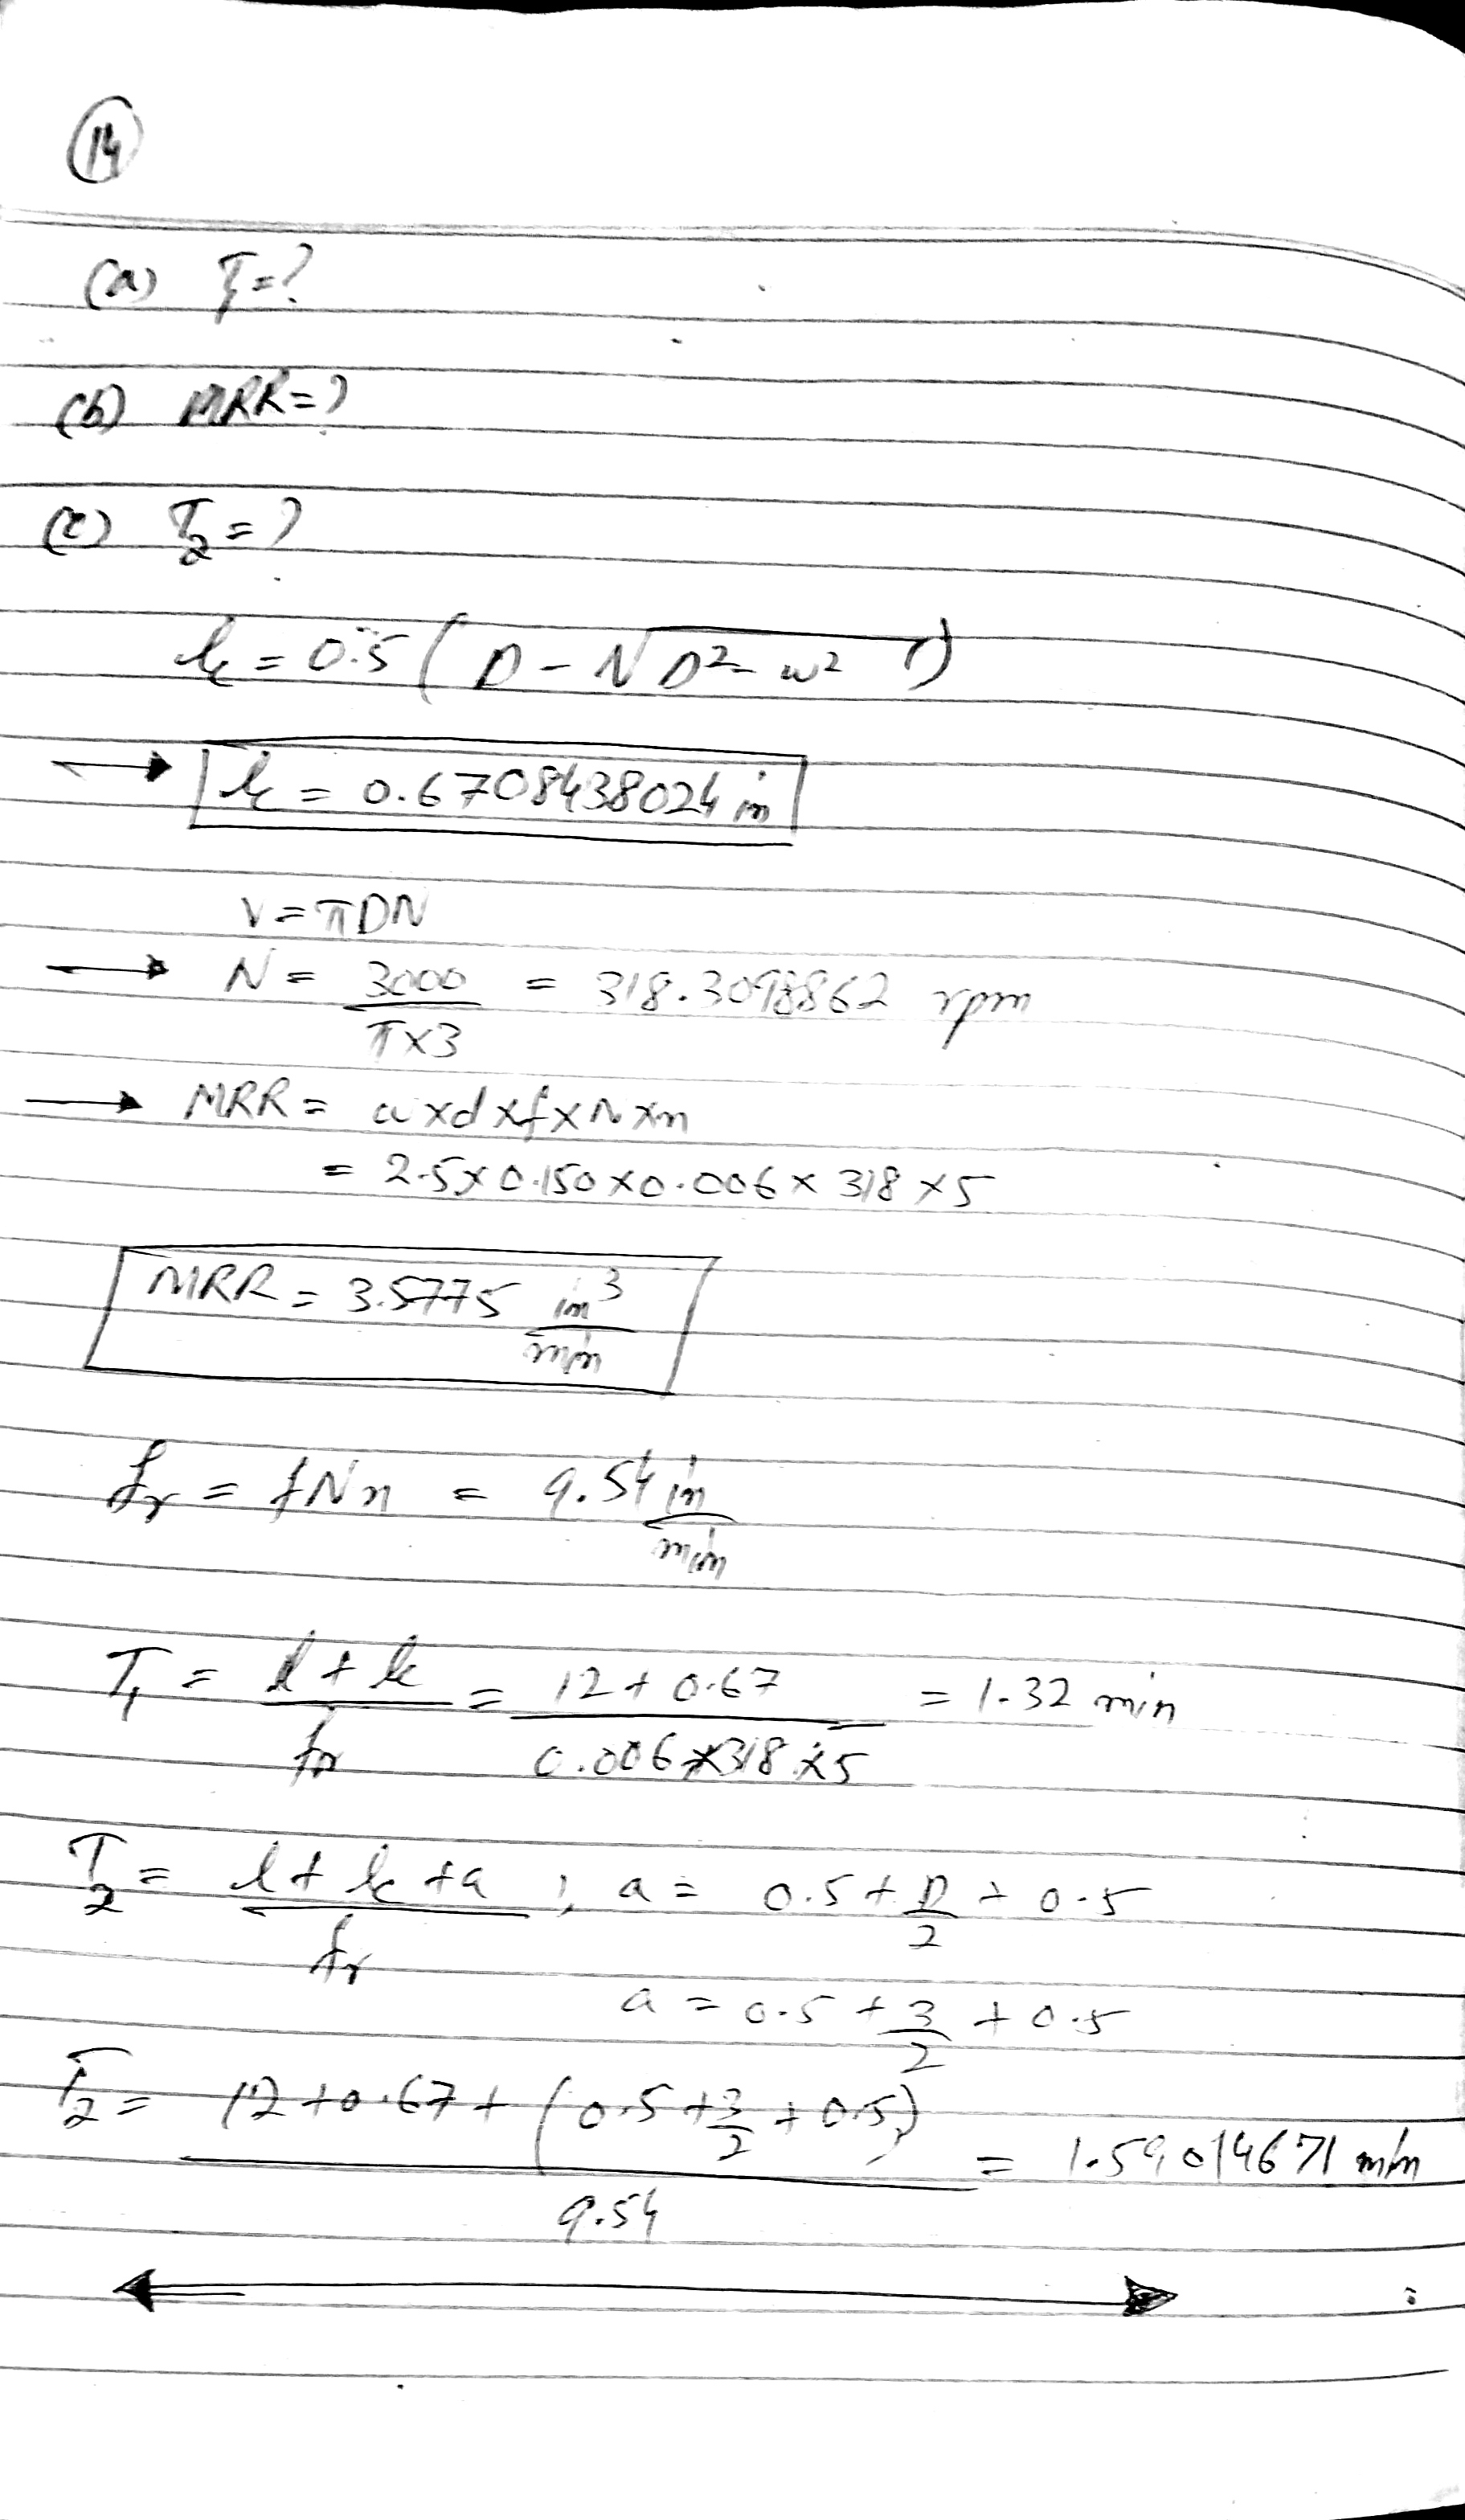 14
(a) T₁=?
(b) MRR=?
(c) T₂=?
lc = 0.5 ( D - √D²- w² )
→ lc = 0.6708438024 in
V = πDN
→ N = 3000/π×3 = 318.3098862 rpm
→ MRR = w×d×f×N×n
= 2.5×0.150×0.006×318×5
MRR = 3.5775 in³/min
fr = fNn = 9.54 in/min
T₁ = l+lc/fr = 12+0.67/0.006×318×5 = 1.32 min
T₂ = l+lc+a/fr ; a = 0.5+D/2+0.5
a = 0.5+3/2+0.5
T₂ = 12+0.67+(0.5+3/2+0.5)/9.54 = 1.59014671 min